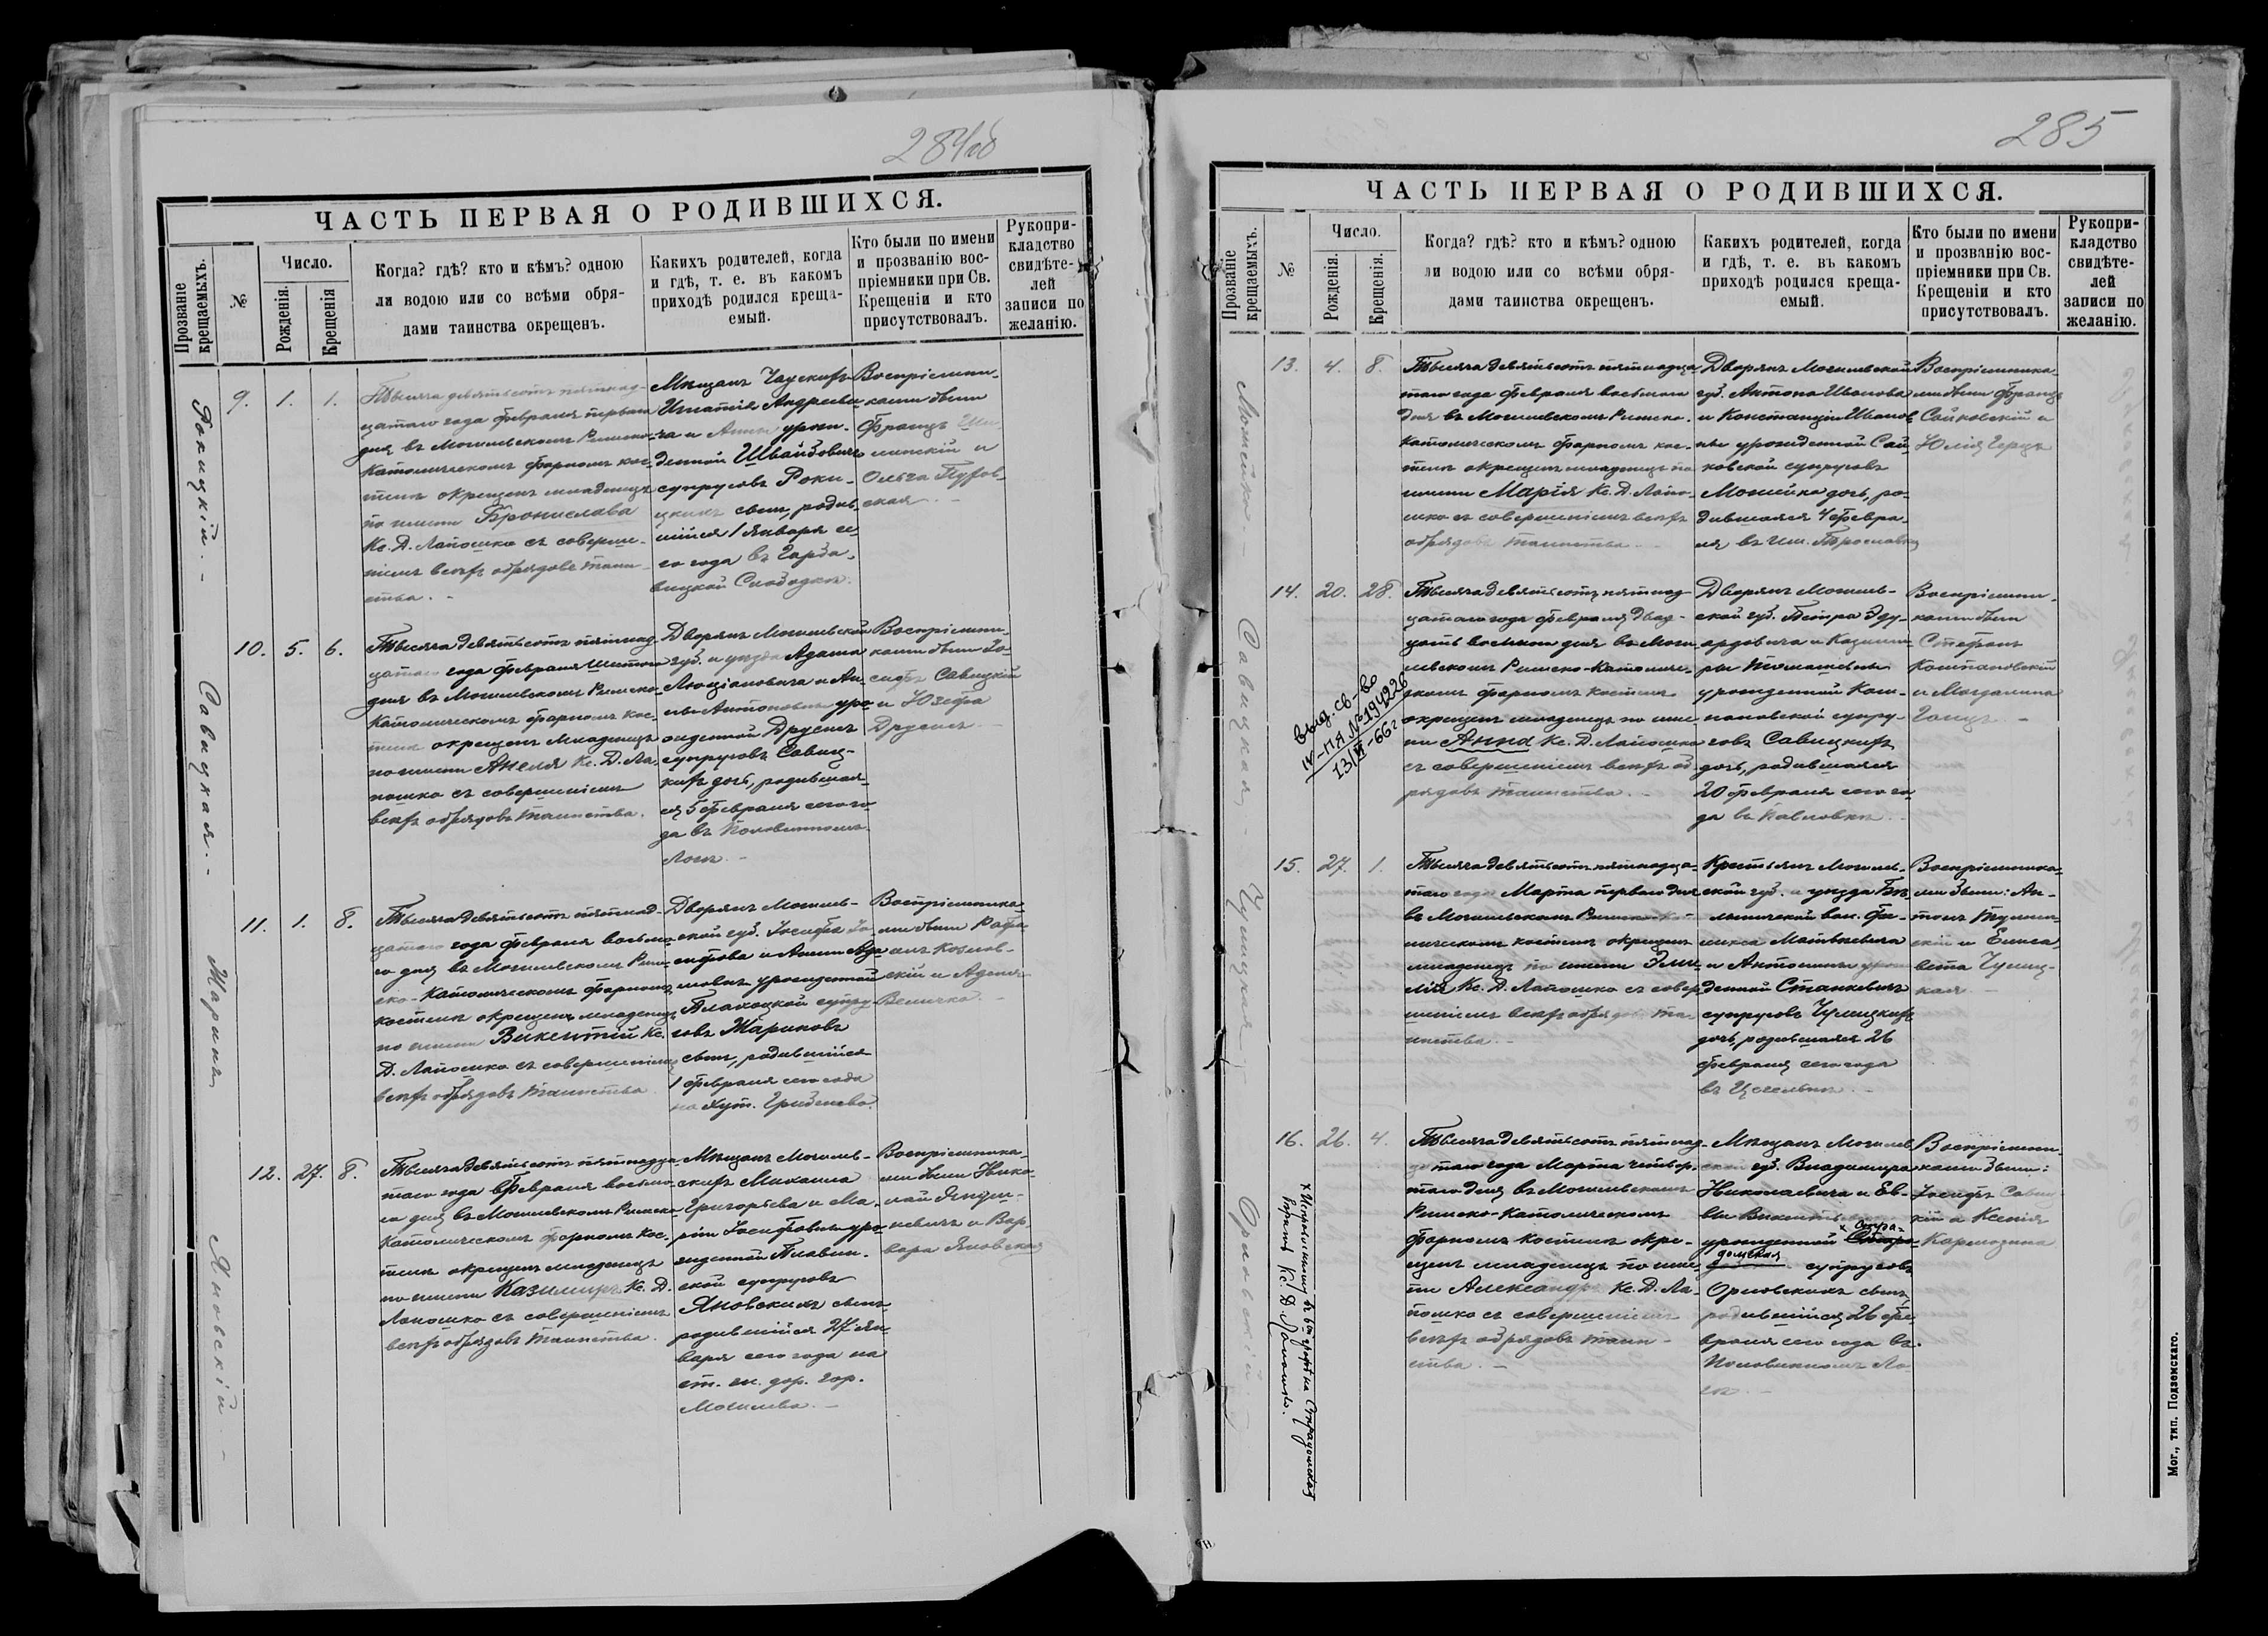 284об
ЧАСТЬ ПЕРВАЯ О РОДИВШИХСЯ.
Прозваніе крещаемыхъ.
№
Число.
Рожденія.
Крещенія
Когда? гдѣ? кто и кѣмъ? одною
ли водою или со всѣми обря-
дами таинства окрещенъ.
Какихъ родителей, когда
и гдѣ, т. е. въ какомъ
приходѣ родился креща-
емый.
Кто были по имени
и прозванію вос-
пріемники при Св.
Крещеніи и кто
присутствовалъ.
Рукопри-
кладство
свидѣте-
лей
записи по
желанію.
Рокицкій. -
9. 1. 1.
Тысяча девятьсотъ пятнад-
цатаго года февраля перваго
дня въ Могилевскомъ Римско-
Католическомъ фарномъ кос-
телѣ окрещенъ младенецъ
по имени Бронислава
Кс. Д. Лапошко съ соверше-
ніемъ всѣхъ обрядовъ таин-
ства. -
Мѣщанъ Чаускихъ
Игнатія Андрееви-
ча и Анны урож-
денной Швайдовичъ
супруговъ Роки-
цкихъ сынъ, родив-
шійся 1 января се-
го года въ
Слободкѣ.
Воспріемни-
ками были
Францъ
и
Ольга
Савицкая. -
10. 5. 6.
Тысяча девятьсотъ пятнад-
цатаго года февраля шестого
дня въ Могилевскомъ Римско-
Католическомъ фарномъ кос-
телѣ окрещенъ младенецъ
по имени Анеля Кс. Д. Ла-
пошко съ совершеніемъ
всѣхъ обрядовъ таинства.
Дворянъ Могилевской
губ. и уѣзда Адама
Люціановича и Ан-
ны Антоновны уро-
жденной Друсикъ
супруговъ Савиц-
кихъ дочь, родившая-
ся 5 февраля сего го-
да въ Половинномъ
Логѣ. -
Воспріемни-
ками были Іо-
сифъ Савицкій
и Юзефа
Друсикъ. -
Жаринъ
11. 1. 8.
Тысяча девятьсотъ пятнад-
цатаго года февраля восьмо-
го дня въ Могилевскомъ Рим-
ско-Католическомъ фарномъ
костелѣ окрещенъ младенецъ
по имени Викентій Кс.
Д. Лапошко съ совершеніемъ
всѣхъ обрядовъ таинства.
Дворянъ Могилев-
ской губ. Іосифа Іо-
сифова и Анны Ада-
мовны урожденной
Плахоцкой супру-
говъ Жариновъ
сынъ, родившійся
1 февраля сего года
на хут. Гребенево.
Воспріемника-
ми были Рафа-
илъ Козлов-
скій и Аделя
Величко. -
Яновскій. -
12. 27. 8.
Тысяча девятьсотъ пятнадца-
таго года февраля восьмо-
го дня въ Могилевскомъ Римско-
Католическомъ фарномъ кос-
телѣ окрещенъ младенецъ
по имени Казимиръ Кс. Д.
Лапошко съ совершеніемъ
всѣхъ обрядовъ таинства.
Мѣщанъ Могилев-
скихъ Михаила
Григорьева и Ма-
ріи Іосифовны уро-
жденной
супруговъ
Яновскихъ сынъ
родившійся 27 ян-
варя сего года на
ст. ж. дор. гор.
Могилева. -
Воспріемника-
ми были Нико-
лай
и Вар-
вара Яновская
285
ЧАСТЬ ПЕРВАЯ О РОДИВШИХСЯ.
Прозваніе крещаемыхъ.
№
Число.
Рожденія.
Крещенія.
Когда? гдѣ? кто и кѣмъ? одною
ли водою или со всѣми обря-
дами таинства окрещенъ.
Какихъ родителей, когда
и гдѣ, т. е. въ какомъ
приходѣ родился креща-
емый.
Кто были по имени
и прозванію вос-
пріемники при Св.
Крещеніи и кто
присутствовалъ.
Рукопри-
кладство
свидѣте-
лей
записи по
желанію.
13. 4. 8.
Тысяча девятьсотъ пятнадца-
таго года февраля восьмаго
дня въ Могилевскомъ Римско-
Католическомъ фарномъ кос-
телѣ окрещенъ младенецъ по
имени Марія Кс. Д. Лапо-
шко съ совершеніемъ всѣхъ
обрядовъ таинства. -
Дворянъ Могилевской
губ. Антона Иванова
и Констанціи Иванов-
ны урожденной Сай-
ковской супруговъ
дочь, ро-
дившаяся 4 февра-
ля въ им.
Воспріемника-
ми были Францъ
Сайковскій и
Юлія Герцъ
Савицкая -
14. 20. 28.
Тысяча девятьсотъ пятнад-
цатаго года февраля двад-
цать восьмого дня въ Моги-
левскомъ Римско-Католиче-
скомъ фарномъ костелѣ
окрещенъ младенецъ по име-
ни Анна Кс. Д. Лапошко
съ совершеніемъ всѣхъ об-
рядовъ таинства. -
Дворянъ Могилев-
ской губ. Петра Эду-
ардовича и Казими-
ры Томашевны
урожденной Ком-
пановской супру-
говъ Савицкихъ
дочь, родившаяся
20 февраля сего го-
да въ Павловкѣ. -
Воспріемни-
ками были
Стефанъ
Компановскій
и Магдалина
Выд. св-во
IV-ПЯ №194226
13/VI-66г
Чулицкая
15. 27. 1.
Тысяча девятьсотъ пятнадца-
таго года Марта перваго дня
въ Могилевскомъ Римско-Ка-
толическомъ костелѣ окрещенъ
младенецъ по имени Эми-
лія Кс. Д. Лапошко съ совер-
шеніемъ всѣхъ обрядовъ та-
инства. -
Крестьянъ Могилев-
ской губ. и уѣзда
вол. Фе-
ликса Матвѣевича
и Антонины урож-
денной Станкевичъ
супруговъ Чулицкихъ
дочь, родившаяся 26
февраля сего года
въ
Воспріемника-
ми были: Ан-
тонъ
и Елиса-
вета Чулиц-
кая -
Орловскій
16. 26. 4.
Тысяча девятьсотъ пятнад-
цатаго года Марта четвер-
таго дня въ Могилевскомъ
Римско-Католическомъ
фарномъ костелѣ окре-
щенъ младенецъ по име-
ни Александръ Кс. Д. Ла-
пошко съ совершеніемъ
всѣхъ обрядовъ таин-
ства. -
Мѣщанъ Могилев-
ской губ. Владимира
Николаевича и Ев-
вы
урожденной × Стра-
домская супруговъ
Орловскихъ сынъ,
родившійся 26 фе-
враля сего года въ
Половинномъ Ло-
гѣ. -
Воспріемни-
ками были:
Іосифъ Савиц-
кій и Ксенія
× Исправленному въ 6ой графѣ на Страдомская
вѣрить Кс. Д. Лапошко.
Мог., тип. Подземскаго.